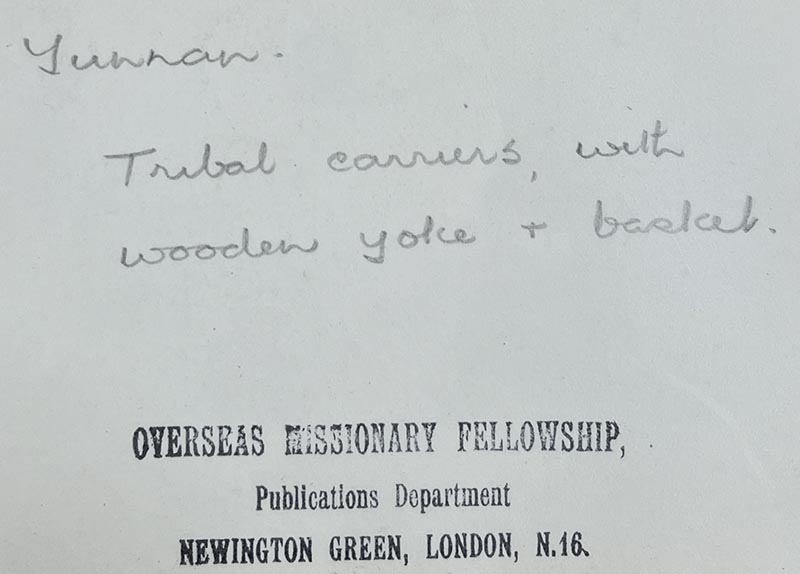 Yunnan.
Tribal carriers, with
wooden yoke + basket.
OVERSEAS MISSIONARY FELLOWSHIP,
Publications Department
NEWINGTON GREEN, LONDON, N.16.